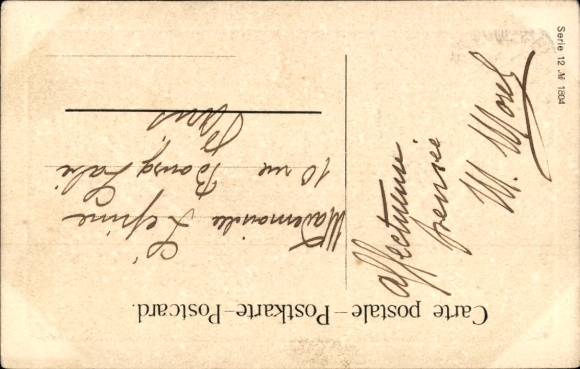 Carte postale–Postkarte–Postcard.
affectueuse
pensée
M. Morel
Mademoiselle Lépine
10 rue Bourg Labé
Paris
Serie 12 № 1804